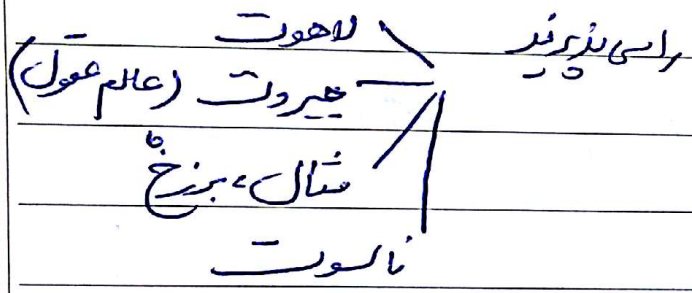 را می پذیرند
لاهوت
جبروت (عالم عقول)
مثال، برزخ
ناسوت